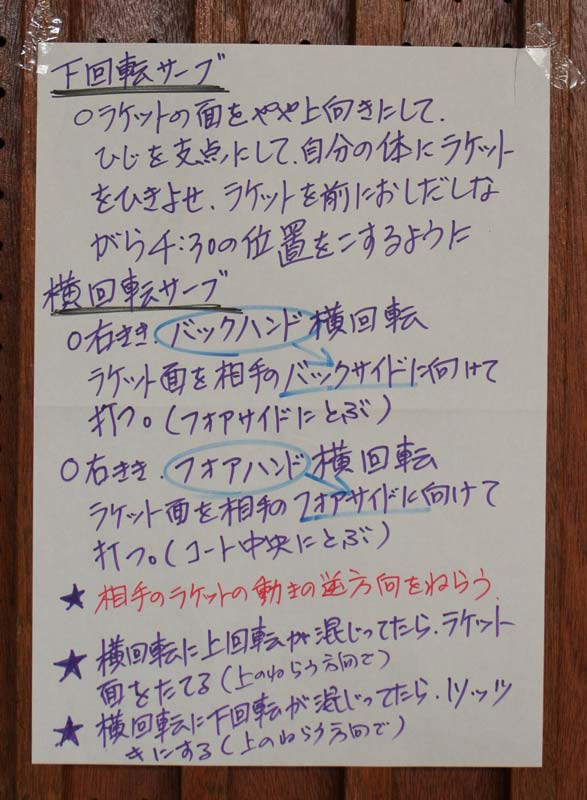 下回転サーブ
○ラケットの面をやや上向きにして、
ひじを支点にして、自分の体にラケット
をひきよせ、ラケットを前におしだしな
がら4:30の位置をこするように
横回転サーブ
○右きき、バックハンド横回転
ラケット面を相手のバックサイドに向けて
打つ。(フォアサイドにとぶ)
○右きき、フォアハンド横回転
ラケット面を相手のフォアサイドに向けて
打つ。(コート中央にとぶ)
★相手のラケットの動きの逆方向をねらう。
★横回転に上回転が混じってたら、ラケット
面をたてる(上のねらう方向で)
★横回転に下回転が混じってたら、ツッツ
きにする(上のねらう方向で)